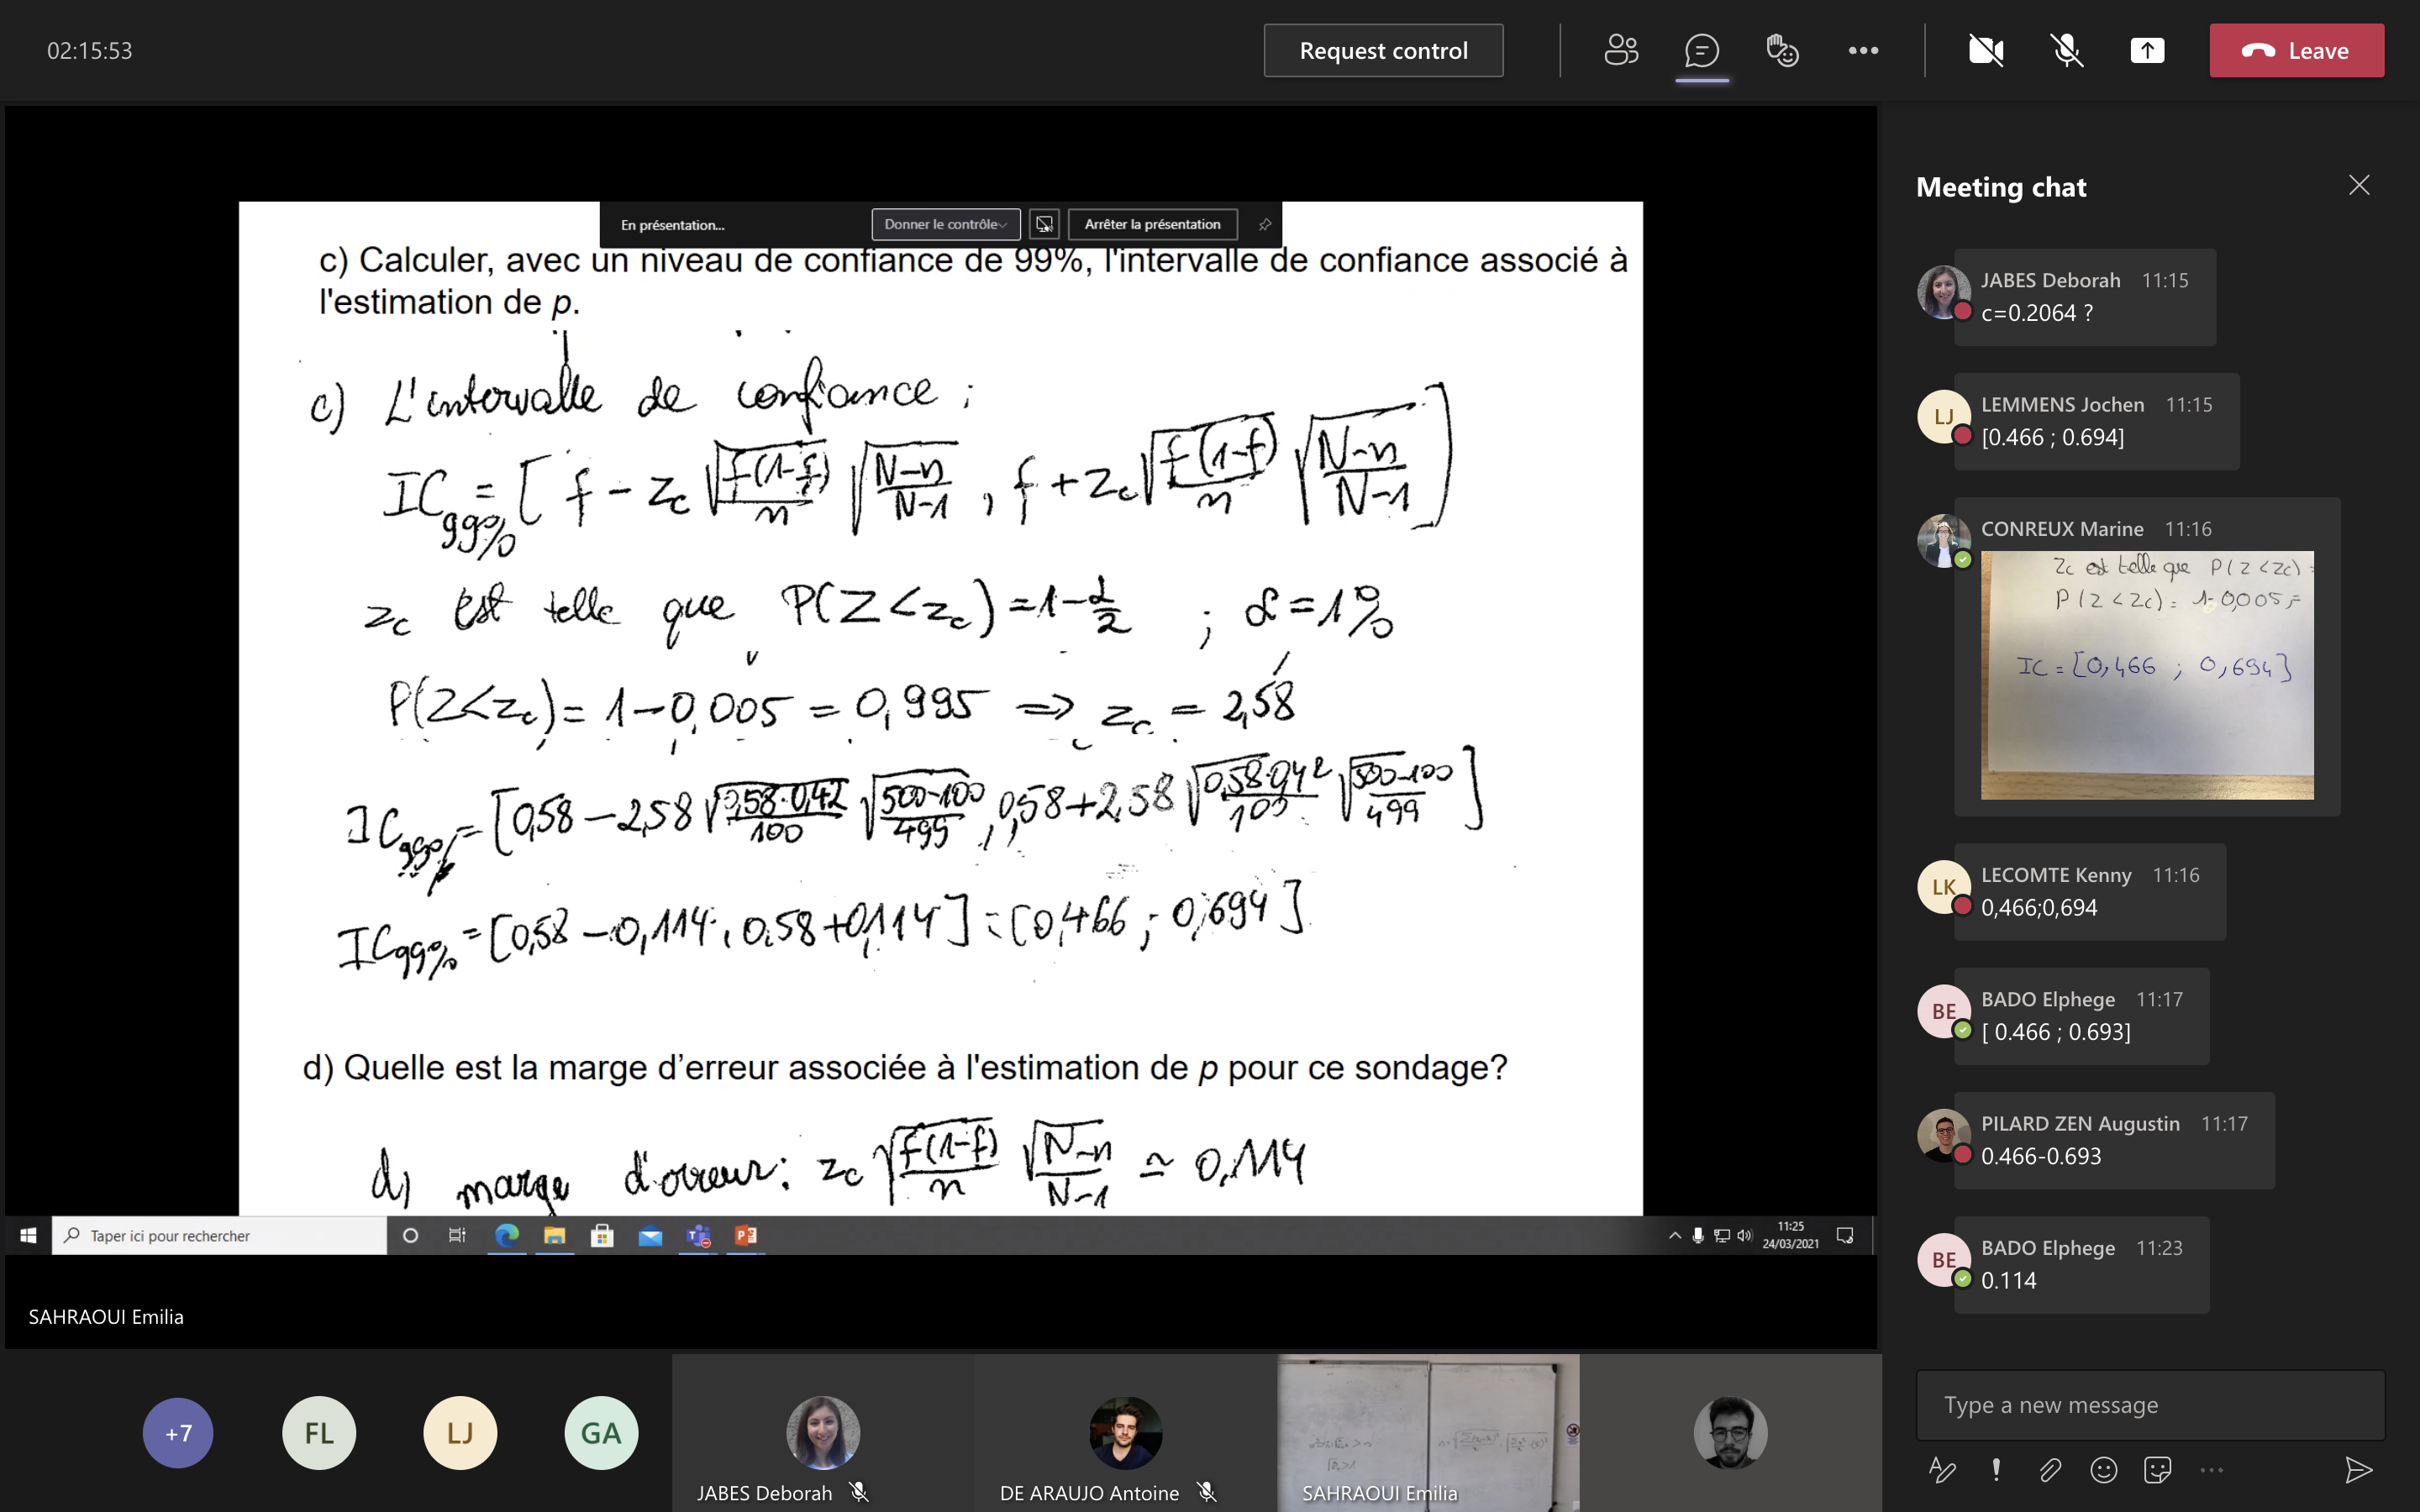 02:15:53
Request control
Leave
En présentation...
Donner le contrôle
Arrêter la présentation
c) Calculer, avec un niveau de confiance de 99%, l'intervalle de confiance associé à
l'estimation de p.
c) L'intervalle de confiance :
IC99% = [ f - zc √(f(1-f)/n) √(N-n/N-1) , f + zc √(f(1-f)/n) √(N-n/N-1) ]
zc est telle que P(Z < zc) = 1 - α/2 ; α = 1%
P(Z < zc) = 1 - 0,005 = 0,995 ⇒ zc = 2,58
IC99% = [0,58 - 2,58 √(0,58·0,42/100) √(500-100/499) , 0,58 + 2,58 √(0,58·0,42/100) √(500-100/499) ]
IC99% = [0,58 - 0,114 ; 0,58 + 0,114] = [0,466 ; 0,694]
d) Quelle est la marge d’erreur associée à l'estimation de p pour ce sondage?
d) marge d'erreur : zc √(f(1-f)/n) √(N-n/N-1) ≃ 0,114
Taper ici pour rechercher
11:25
24/03/2021
SAHRAOUI Emilia
+7
FL
LJ
GA
JABES Deborah
DE ARAUJO Antoine
SAHRAOUI Emilia
Meeting chat
JABES Deborah 11:15
c=0.2064 ?
LJ
LEMMENS Jochen 11:15
[0.466 ; 0.694]
CONREUX Marine 11:16
Zc est telle que P(Z < Zc) =
P(Z < Zc) = 1-0,005 =
IC = [0,466 ; 0,694]
LK
LECOMTE Kenny 11:16
0,466;0,694
BE
BADO Elphege 11:17
[ 0.466 ; 0.693]
PILARD ZEN Augustin 11:17
0.466-0.693
BE
BADO Elphege 11:23
0.114
Type a new message